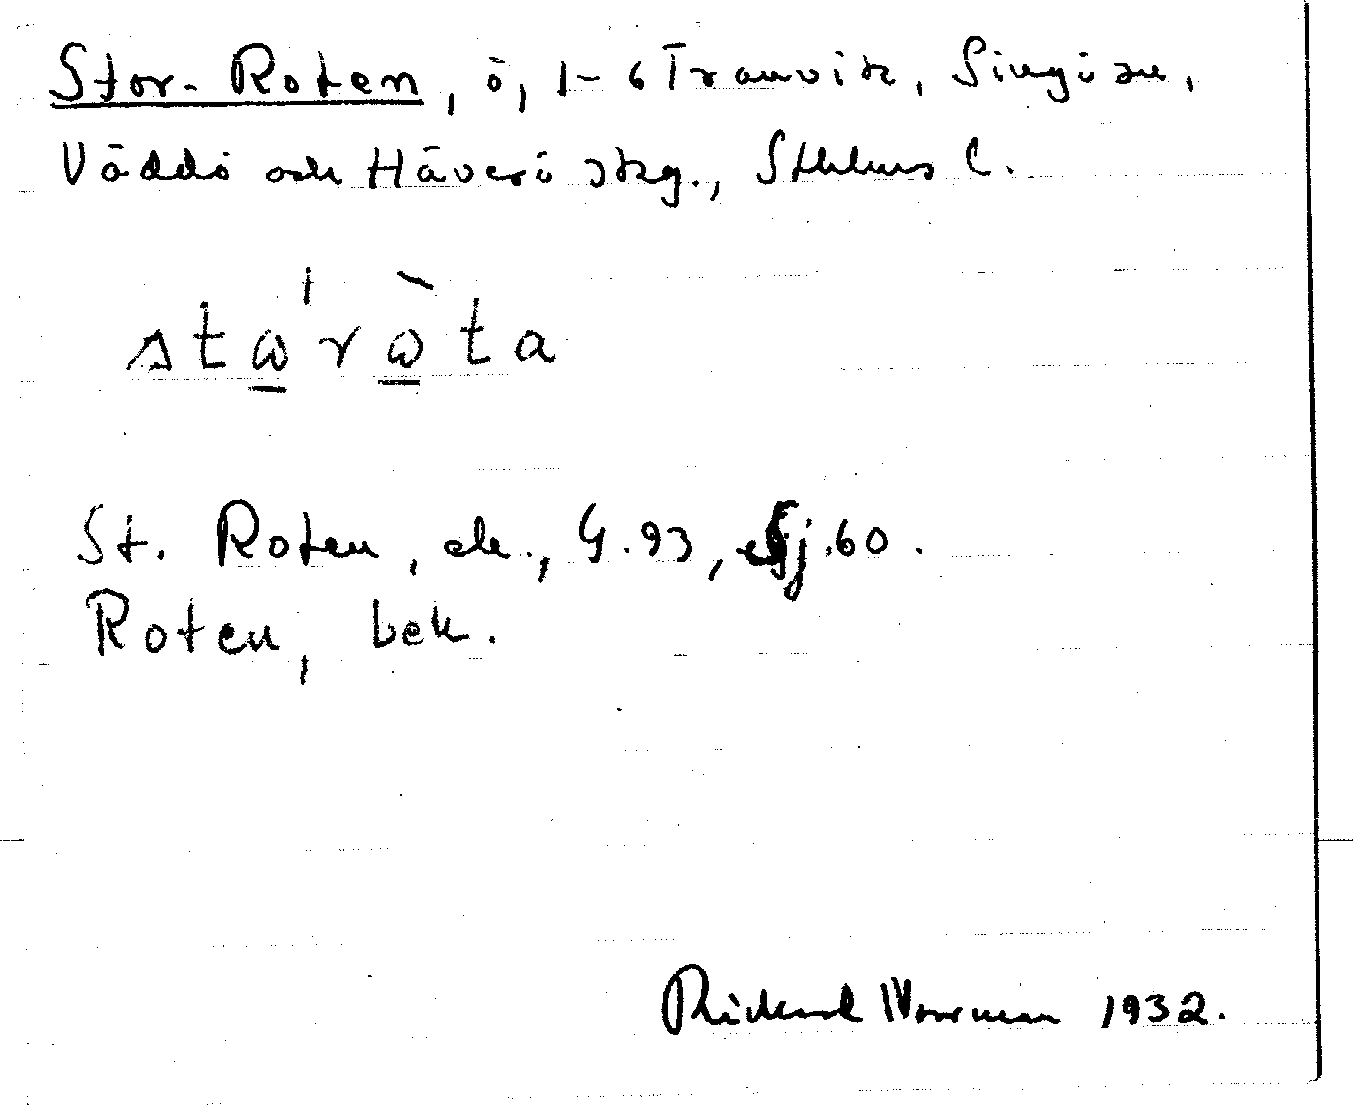 Stor-Roten, ö, 1-6 Tranvik, Singö sn,
Väddö och Häverö skg., Sthlms l.
stω̲'rὼ̲ta
St. Roten, ek., G.93, Sj.60.
Roten, bek.
Rickard Norrman 1932.